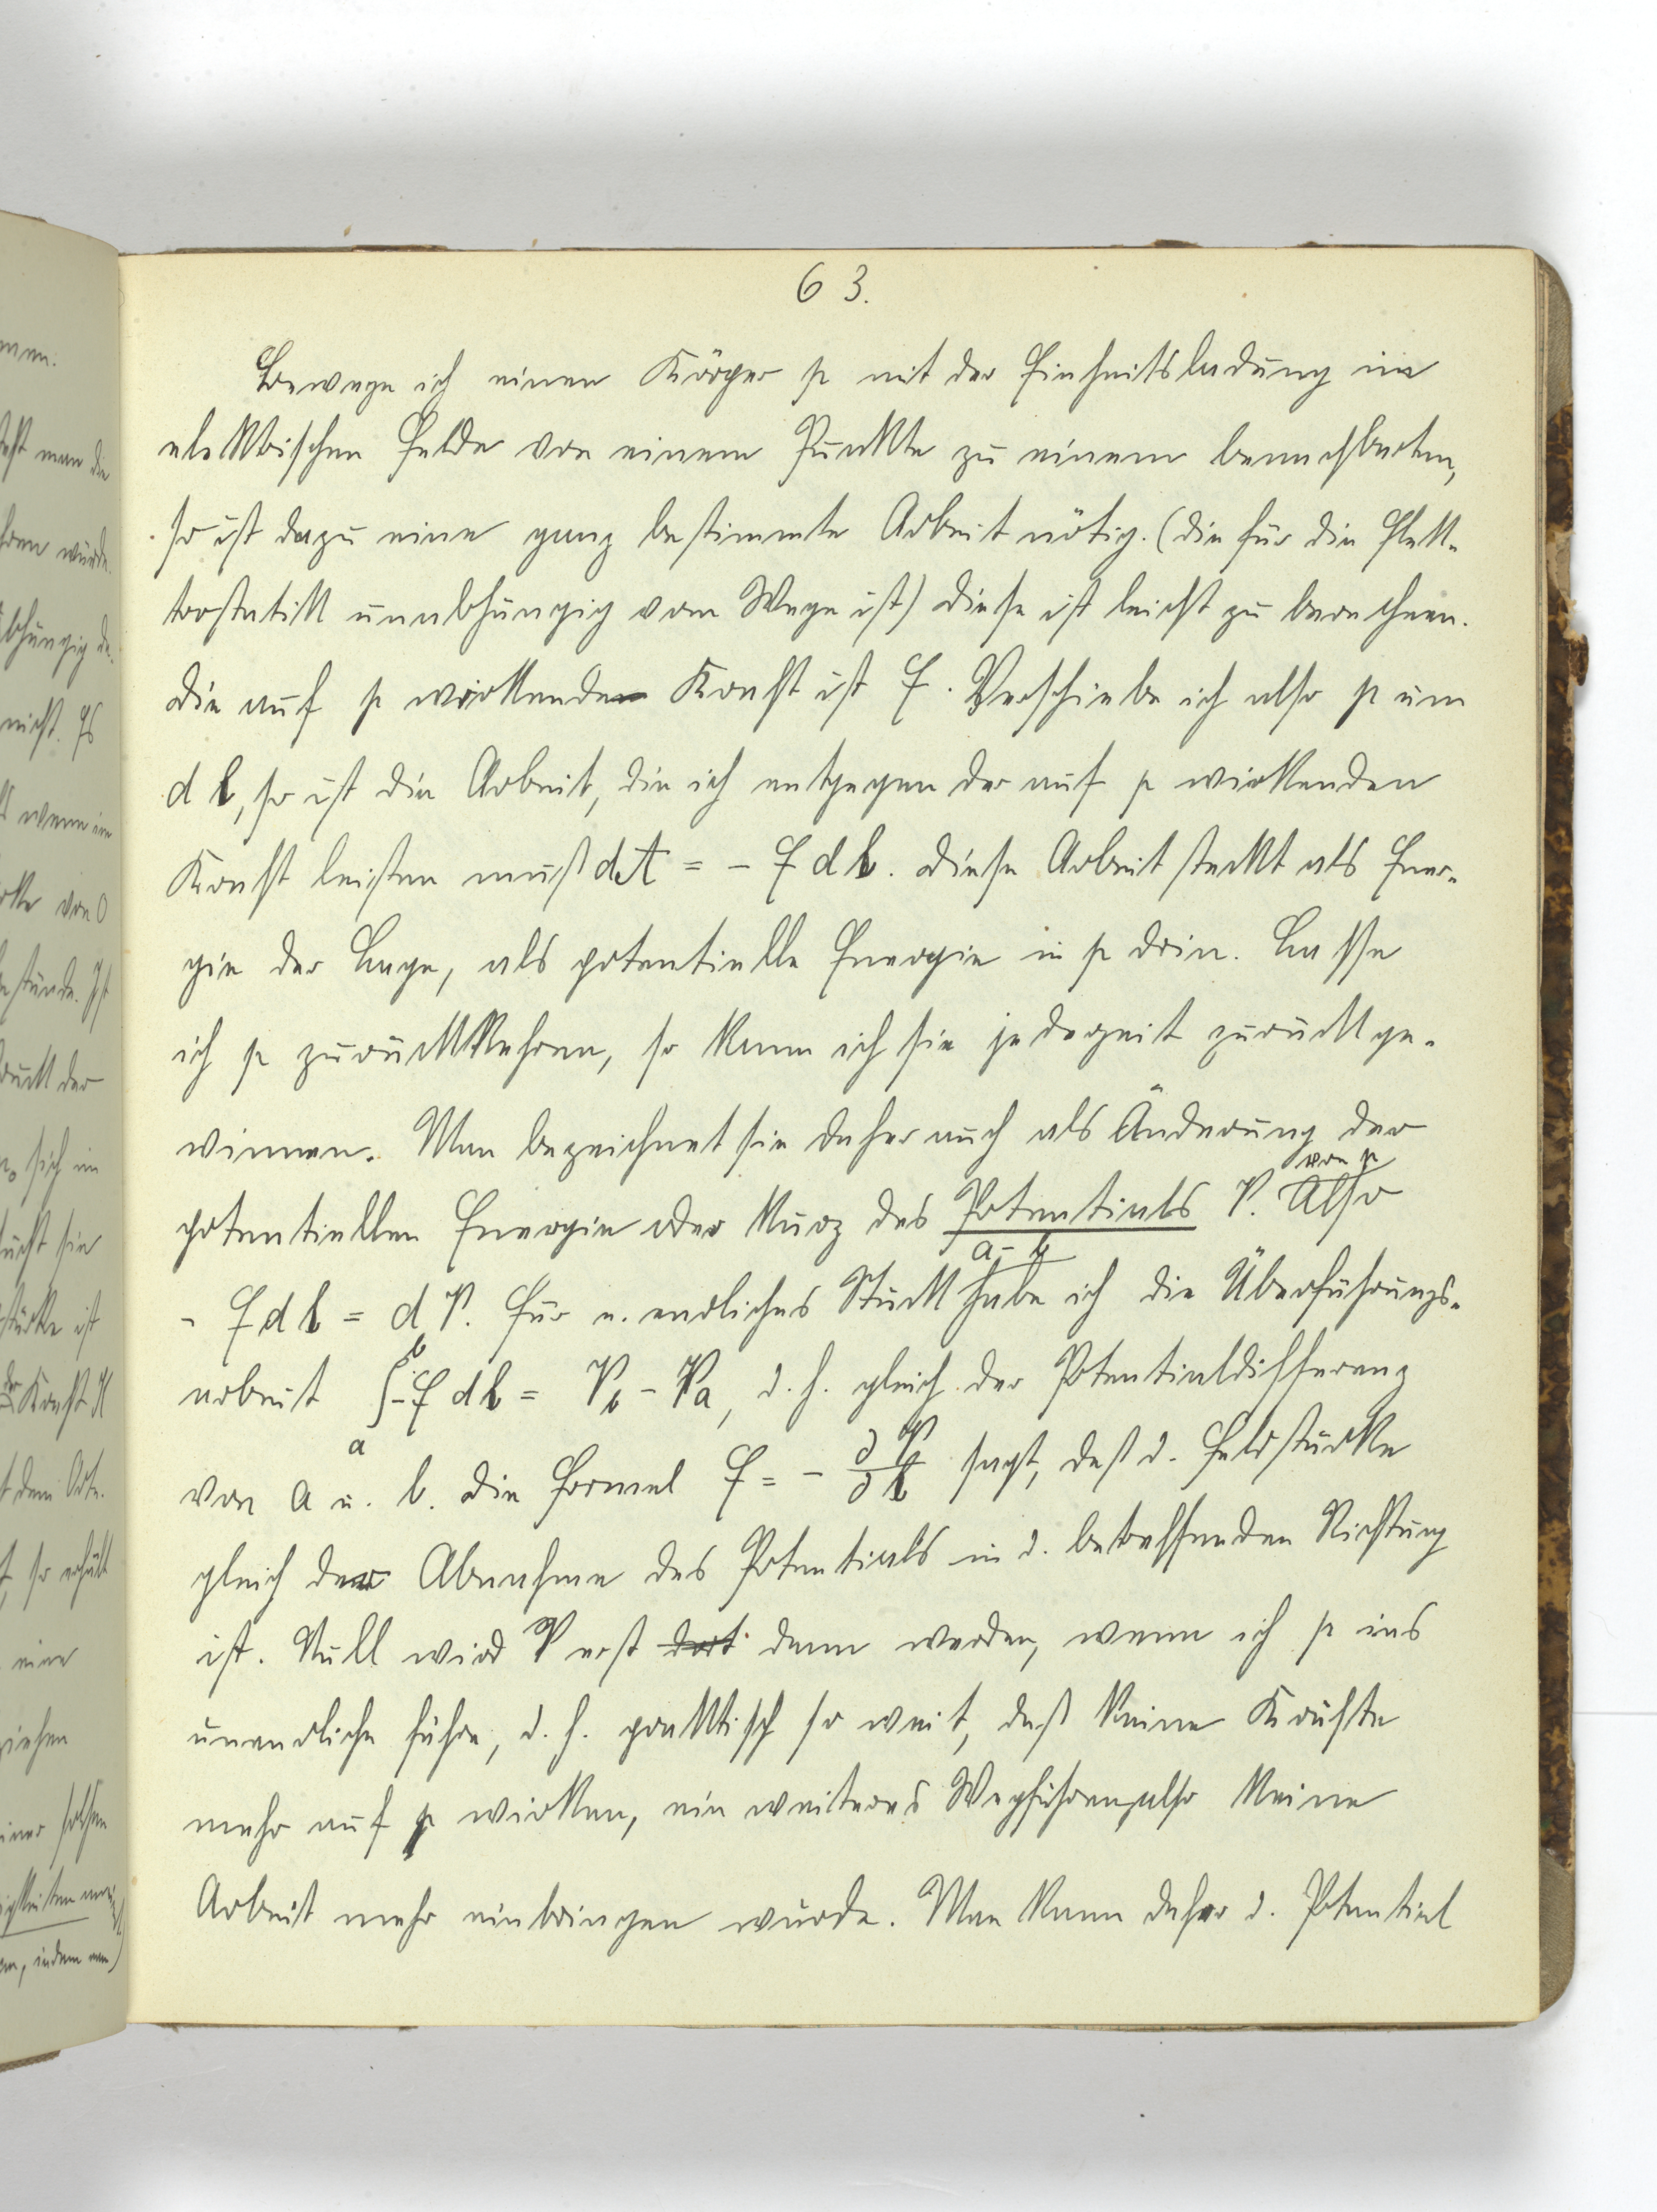 63.
Bewege ich einen Körper p mit der Einheitsladung im
elektrischen Felde von einem Punkte zu einem benachbarten,
so ist dazu eine ganz bestimmte Arbeit nötig. (die für die Elek-
trostatik unabhängig vom Wege ist) Diese ist leicht zu berechnen.
Die auf p wirkende Kraft ist E. Verschiebe ich also p um
d l, so ist die Arbeit, die ich entgegen der auf p wirkenden
Kraft leisten muß dA = - E d l. Diese Arbeit steckt als Ener-
gie der Lage, als potentielle Energie in p drin. Lasse
ich p zurückkehren, so kann ich sie jederzeit zurückge-
winnen. Man bezeichnet sie daher auch als Änderung der
von p
potentiellen Energie oder kurz des Potentials V. Also
a - b
- E d l = d V. Für e. endliches Stück habe ich die Überführungs-
arbeit ∫ₐᵇ - E d l = V_b - V_a, d. h. gleich der Potentialdifferenz
von a u. b. Die Formel E = - ∂V/∂l sagt, daß d. Feldstärke
gleich der Abnahme des Potentials in d. betreffenden Richtung
ist. Null wird V erst dort dann werden, wenn ich p ins
unendliche führe, d. h. praktisch so weit, daß keine Kräfte
mehr auf p wirken, ein weiteres Wegführen also keine
Arbeit mehr einbringen würde. Man kann daher d. Potential